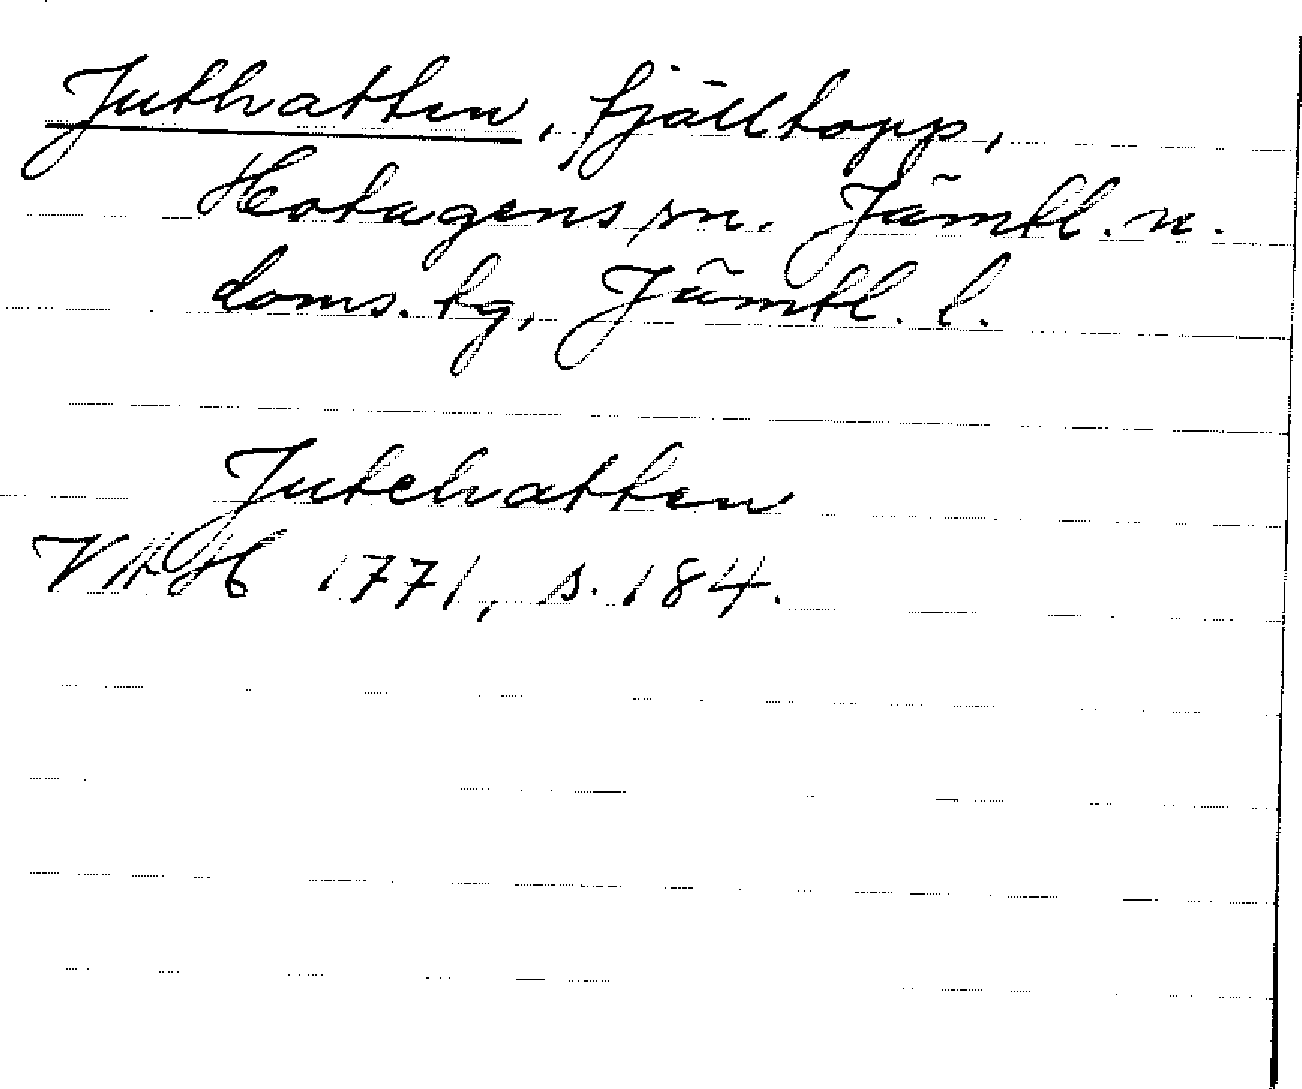 Juthatten, fjälltopp,
Hotagens sn. Jämtl. n.
doms. tg, Jämtl. l.
Jutehatten
VAH 1771, s. 184.